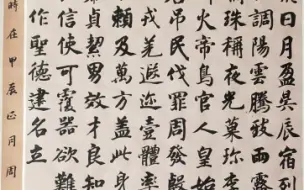 日月盈昃辰
調陽雲騰致雨露
珠稱夜光菓珍李
火帝鳥官人皇始
吊民伐罪周發殷
戎羌遐邇壹體率
賴及萬方蓋此身
貞潔男效才良知
信使可覆器欲難
作聖德建名立
時在甲辰正月周